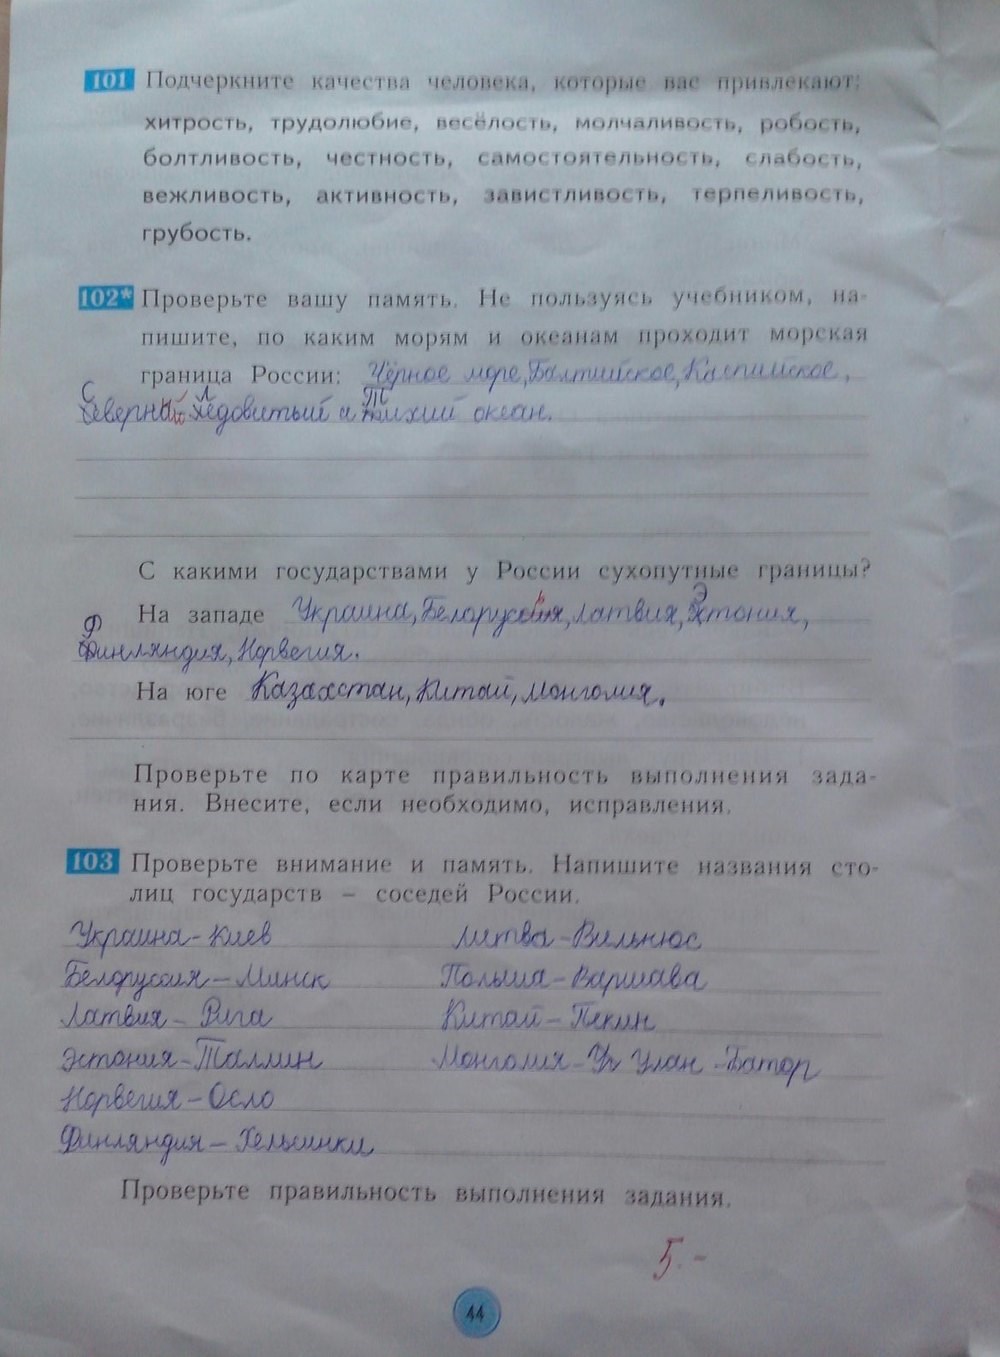 101 Подчеркните качества человека, которые вас привлекают:
хитрость, трудолюбие, весёлость, молчаливость, робость,
болтливость, честность, самостоятельность, слабость,
вежливость, активность, завистливость, терпеливость,
грубость.
102* Проверьте вашу память. Не пользуясь учебником, на-
пишите, по каким морям и океанам проходит морская
граница России: Чёрное море, Балтийское, Каспийское,
Северный Ледовитый и Тихий океан.
С какими государствами у России сухопутные границы?
На западе Украина, Белоруссия, Латвия, Эстония,
Финляндия, Норвегия.
На юге Казахстан, Китай, Монголия.
Проверьте по карте правильность выполнения зада-
ния. Внесите, если необходимо, исправления.
103 Проверьте внимание и память. Напишите названия сто-
лиц государств – соседей России.
Украина - Киев Литва - Вильнюс
Белоруссия - Минск Польша - Варшава
Латвия - Рига Китай - Пекин
Эстония - Таллин Монголия - Улан - Батор
Норвегия - Осло
Финляндия - Хельсинки
Проверьте правильность выполнения задания.
5.-
44